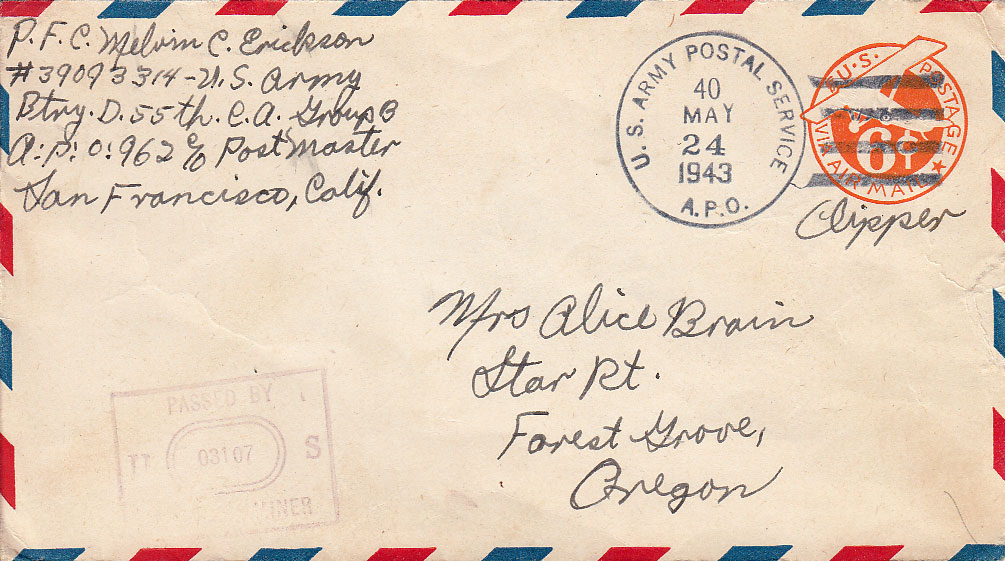 P.F.C. Melvin C. Erickson
#39093314-U.S. Army
Btry. D. 55th. C.A. Group
A.P.O. 962 c/o Post Master
San Francisco, Calif.
U.S. ARMY POSTAL SERVICE
40
MAY
24
1943
A.P.O.
U.S. POSTAGE
6¢
VIA AIR MAIL
Clipper
Mrs Alice Brain
Star Rt.
Forest Grove,
Oregon
PASSED BY
03107
S
MINER